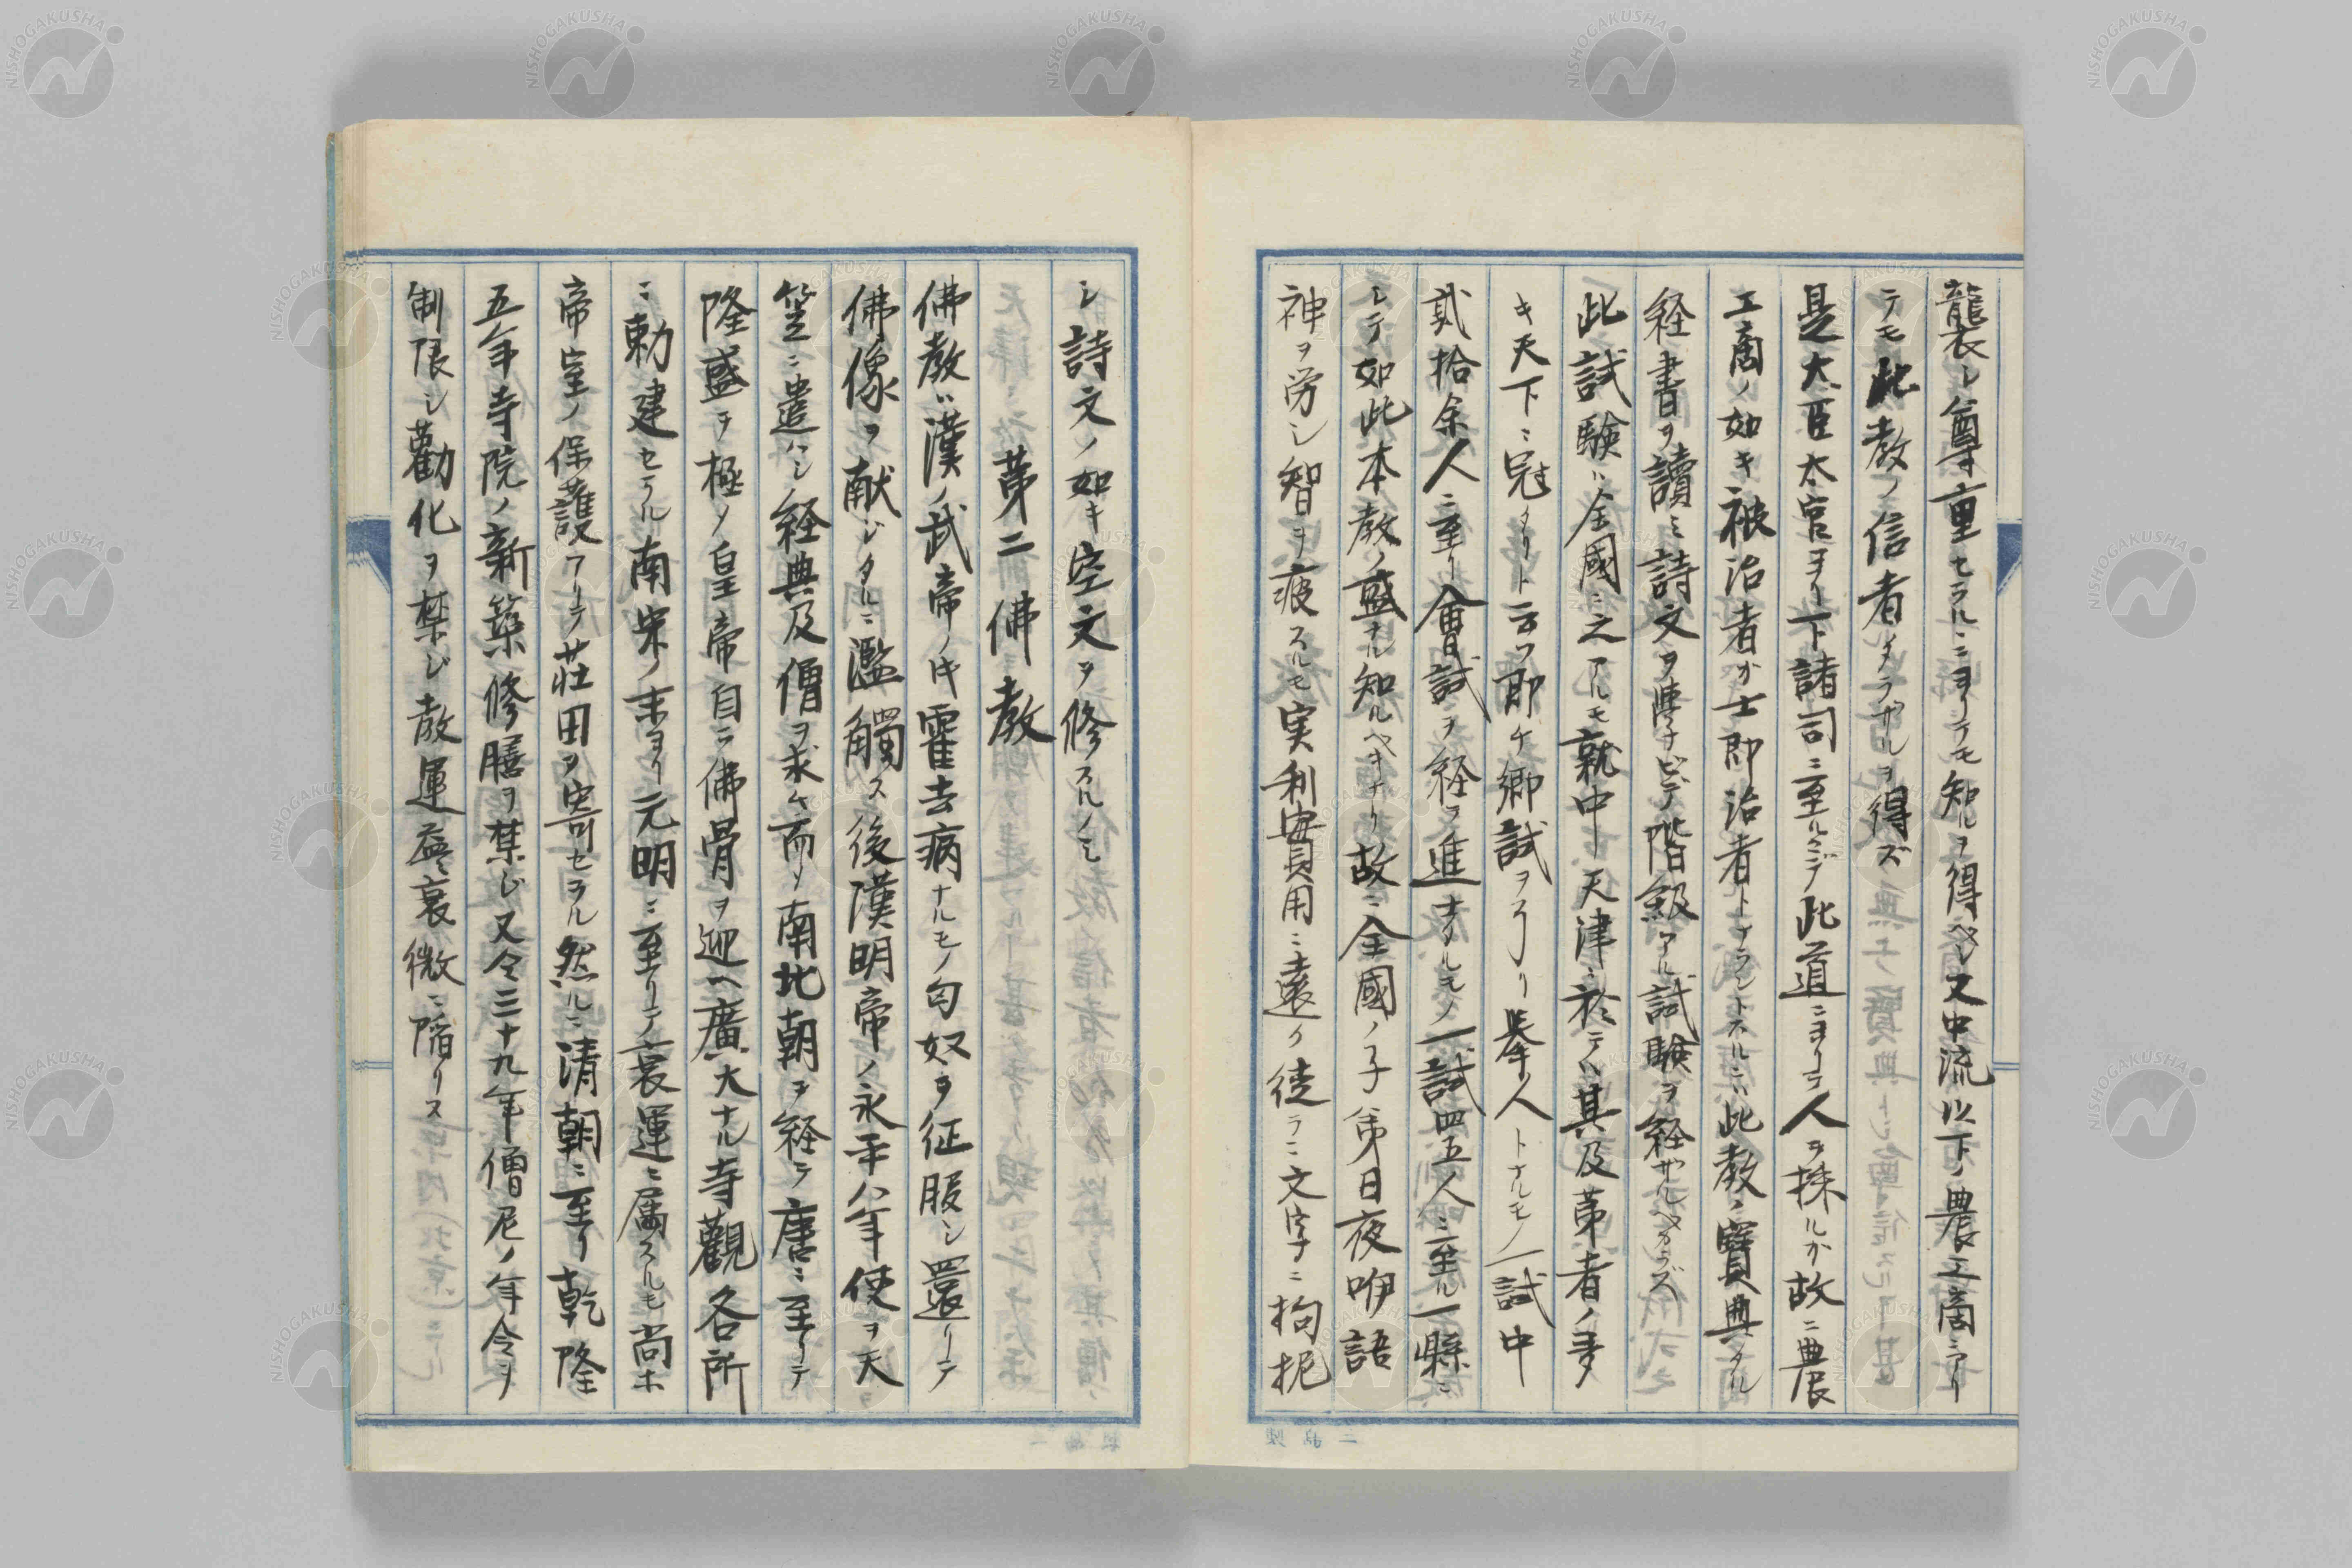 襲シ尊重セラルニヨリテモ知ルヲ得ベシ又中流以下ノ農工商ニアリ
テモ此教ノ信者タラザルヲ得ズ
是大臣太官ヨリ下諸司ニ至ルマデ此道ニヨリテ人ヲ採ルカ故ニ農
工商ノ如キ被治者カ士即治者トナラントスルニハ此教ノ寶典タル
経書ヲ讀ミ詩文ヲ學ナビテ階級アル試験ヲ経ザルベカラズ
此試験ハ全國ニ之アルモ就中天津ニ於テハ其及第者ノ多
キ天下ニ冠タリト云フ即チ郷試ヲ行リ挙人トナルモノ一試中
貳拾余人ニ至リ會試ヲ経ラ進士タルモノ一試四五人ニ至ル一縣ニ
シテ如此本教ノ盛ナル知ルベキナリ故ニ全國ノ子弟日夜咿語
神ヲ労シ智ヲ疲スルモ実利實用ニ遠ク徒ラニ文字ニ拘抳
シ詩文ノ如キ空文ヲ修スルノミ
第二佛教
佛教ハ漢ノ武帝ノ時霍去病ナルモノ匈奴ヲ征服シ還リテ
佛像ヲ献ジタルニ濫觴ス後漢明帝ノ永平八年使ヲ天
竺ニ遣ハシ経典及僧ヲ求ム而ソ南北朝ヲ経テ唐ニ至リテ
隆盛ヲ極ノ皇帝自ラ佛骨ヲ迎ヘ廣大ナル寺觀各所
ニ勅建セラル南宋ノ末ヨリ元明ニ至リテ衰運ニ属スルモ尚ホ
帝室ノ保護アリテ莊田ヲ寄セラル然ルニ清朝ニ至リ乾隆
五年寺院ノ新築修膳ヲ禁ジ又仝三十九年僧尼ノ年令ヲ
制限シ勸化ヲ禁ジ教運益〻衰微ニ陷リス
NISHOGAKUSHA